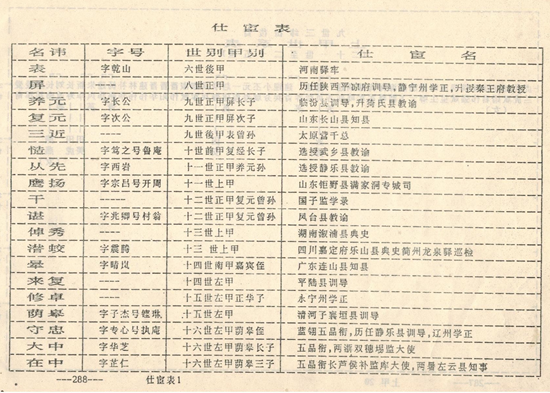 仕宦表
名讳 字号 世别甲别 仕宦名
表 字乾山 六世後甲 河南驿车
屏 ---- 八世正甲 历任陕西平凉府训导,静宁州学正,升授秦王府教授
养元 字长公 九世正甲屏长子 临汾县训导,升猗氏县教谕
复元 字次公 九世正甲屏次子 山东长山县知县
三近 ---- 九世後甲表曾孙 太原营千总
字笃之号鲁庵 十世前甲复经长子 选授武乡县教谕
从先 字西岩 十一世正甲养元孙 选授静乐县教谕
鹰扬 字宗昌号开周 十一世上甲 山东钜野县满家洞专城司
干 ----- 十二世正甲复元曾孙 国子监学录
谌 字兆卿号村翁 十二世正甲复元曾孙 凤台县教谕
倬秀 ---- 十三世上甲 湖南溆浦县典史
潜蛟 字震腾 十三世上甲 四川嘉定府乐山县典史简州龙泉驿巡检
晕 字晴岚 十四世南甲嘉宾侄 广东连山县知县
来复 ---- 十四世左甲 平陆县训导
修卓 ---- 十五世左甲正华子 永宁州学正
荫皋 字子杰号铿琳 十五世左甲 清河子襄垣县训导
守忠 字专心号执庵 十六世左甲荫皋侄 蓝翎五品衔,历任静乐县训导,辽州学正
大中 字华芝 十六世左甲荫皋长子 五品衔,两浙双穗场监大使
在中 字芷仁 十六世左甲荫皋三子 五品衔长芦候补监库大使,两署左云县知事
---288--- 仕宦表1